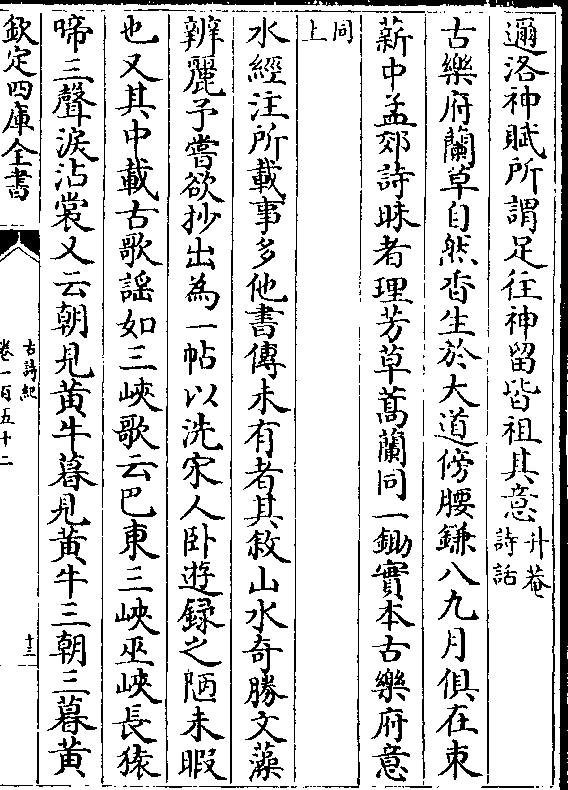 邇洛神賦所謂足往神留皆祖其意升菴詩話
古樂府蘭草自然香生於大道傍腰鎌八九月俱在束
薪中孟郊詩昧者理芳草蒿蘭同一鋤實本古樂府意
同上
水經注所載事多他書傳未有者其敘山水奇勝文藻
辨麗予嘗欲抄出為一帖以洗宋人卧遊録之陋未暇
也又其中載古歌謡如三峽歌云巴東三峽巫峽長猿
啼三聲淚沾裳又云朝見黄牛暮見黄牛三朝三暮黄
欽定四庫全書
古詩紀
卷一百五十二
十三